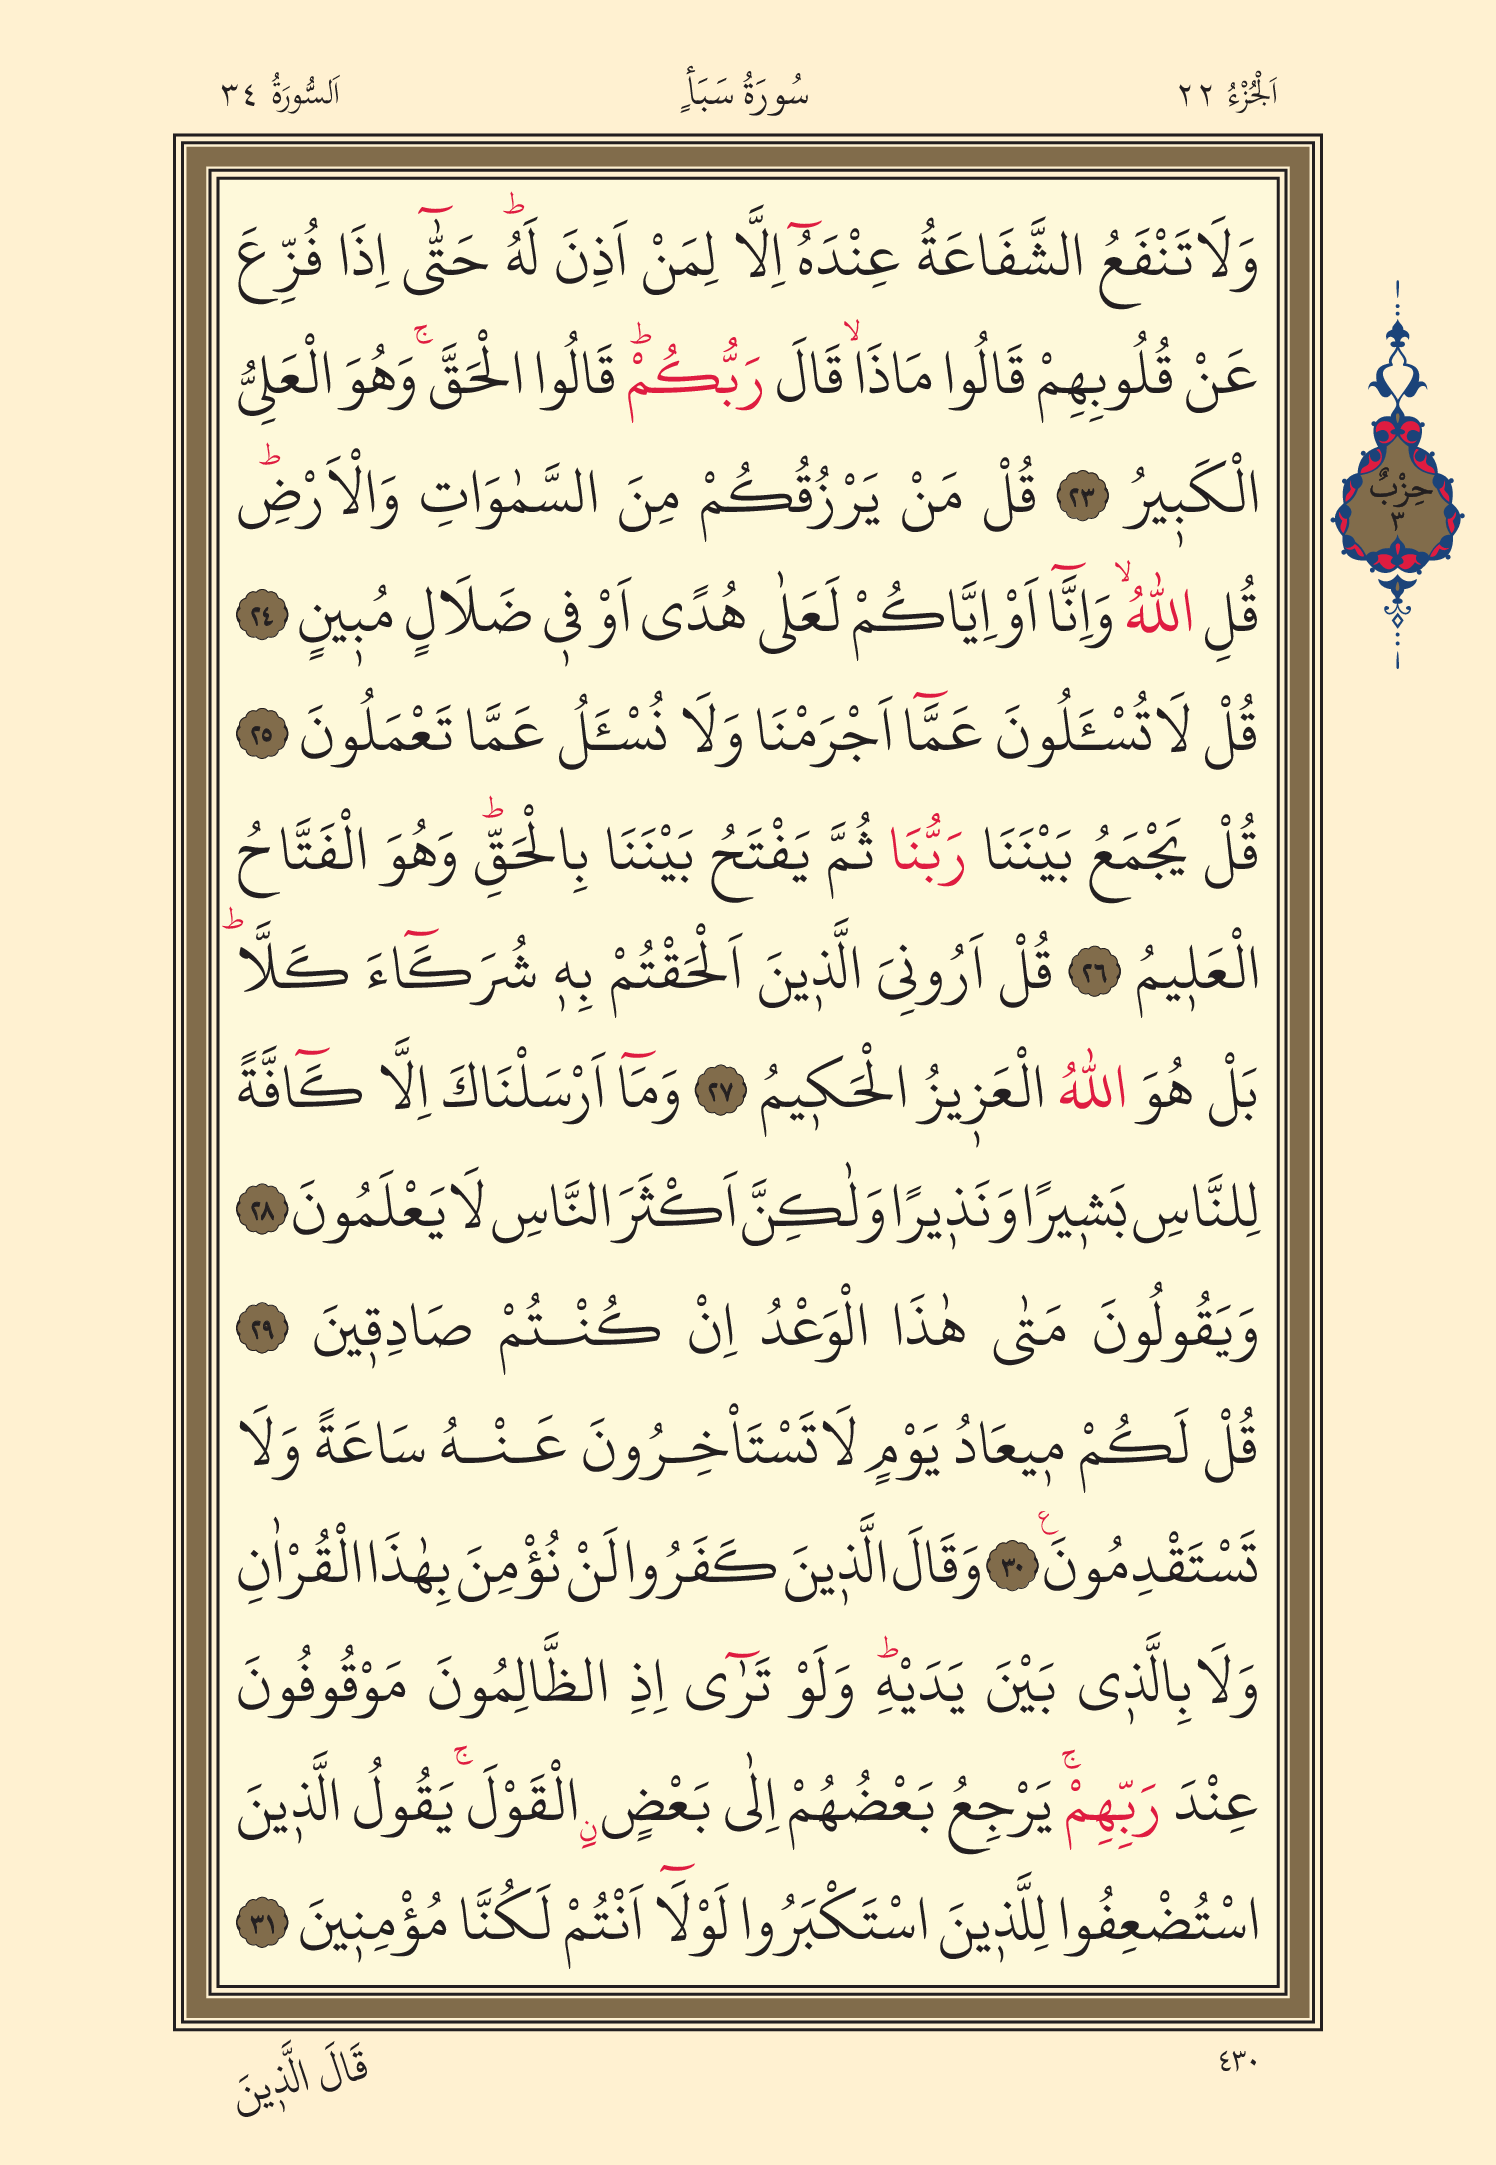 اَلْجُزْءُ ٢٢
سُورَةُ سَبَأٍ
اَلسُّورَةُ ٣٤
وَلَا تَنْفَعُ الشَّفَاعَةُ عِنْدَهُٓ اِلَّا لِمَنْ اَذِنَ لَهُۜ حَتّٰٓى اِذَا فُزِّعَ
عَنْ قُلُوبِهِمْ قَالُوا مَاذَاۙ قَالَ رَبُّكُمْۜ قَالُوا الْحَقَّۚ وَهُوَ الْعَلِيُّ
الْكَب۪يرُ ﴿٢٣﴾ قُلْ مَنْ يَرْزُقُكُمْ مِنَ السَّمٰوَاتِ وَالْاَرْضِۜ
قُلِ اللّٰهُۙ وَاِنَّٓا اَوْ اِيَّاكُمْ لَعَلٰى هُدًى اَوْ ف۪ي ضَلَالٍ مُب۪ينٍ ﴿٢٤﴾
قُلْ لَا تُسْـَٔلُونَ عَمَّٓا اَجْرَمْنَا وَلَا نُسْـَٔلُ عَمَّا تَعْمَلُونَ ﴿٢٥﴾
قُلْ يَجْمَعُ بَيْنَنَا رَبُّنَا ثُمَّ يَفْتَحُ بَيْنَنَا بِالْحَقِّۜ وَهُوَ الْفَتَّاحُ
الْعَل۪يمُ ﴿٢٦﴾ قُلْ اَرُونِيَ الَّذ۪ينَ اَلْحَقْتُمْ بِه۪ شُرَكَٓاءَ كَلَّاۜ
بَلْ هُوَ اللّٰهُ الْعَز۪يزُ الْحَك۪يمُ ﴿٢٧﴾ وَمَٓا اَرْسَلْنَاكَ اِلَّا كَٓافَّةً
لِلنَّاسِ بَش۪يرًا وَنَذ۪يرًا وَلٰكِنَّ اَكْثَرَ النَّاسِ لَا يَعْلَمُونَ ﴿٢٨﴾
وَيَقُولُونَ مَتٰى هٰذَا الْوَعْدُ اِنْ كُنْتُمْ صَادِق۪ينَ ﴿٢٩﴾
قُلْ لَكُمْ م۪يعَادُ يَوْمٍ لَا تَسْتَأْخِرُونَ عَنْهُ سَاعَةً وَلَا
تَسْتَقْدِمُونَ ع ﴿٣٠﴾ وَقَالَ الَّذ۪ينَ كَفَرُوا لَنْ نُؤْمِنَ بِهٰذَا الْقُرْاٰنِ
وَلَا بِالَّذ۪ي بَيْنَ يَدَيْهِۜ وَلَوْ تَرٰٓى اِذِ الظَّالِمُونَ مَوْقُوفُونَ
عِنْدَ رَبِّهِمْۚ يَرْجِعُ بَعْضُهُمْ اِلٰى بَعْضٍ نِ الْقَوْلَۚ يَقُولُ الَّذ۪ينَ
اسْتُضْعِفُوا لِلَّذ۪ينَ اسْتَكْبَرُوا لَوْلَٓا اَنْتُمْ لَكُنَّا مُؤْمِن۪ينَ ﴿٣١﴾
حِزْبٌ
٣
٤٣٠
قَالَ الَّذ۪ينَ